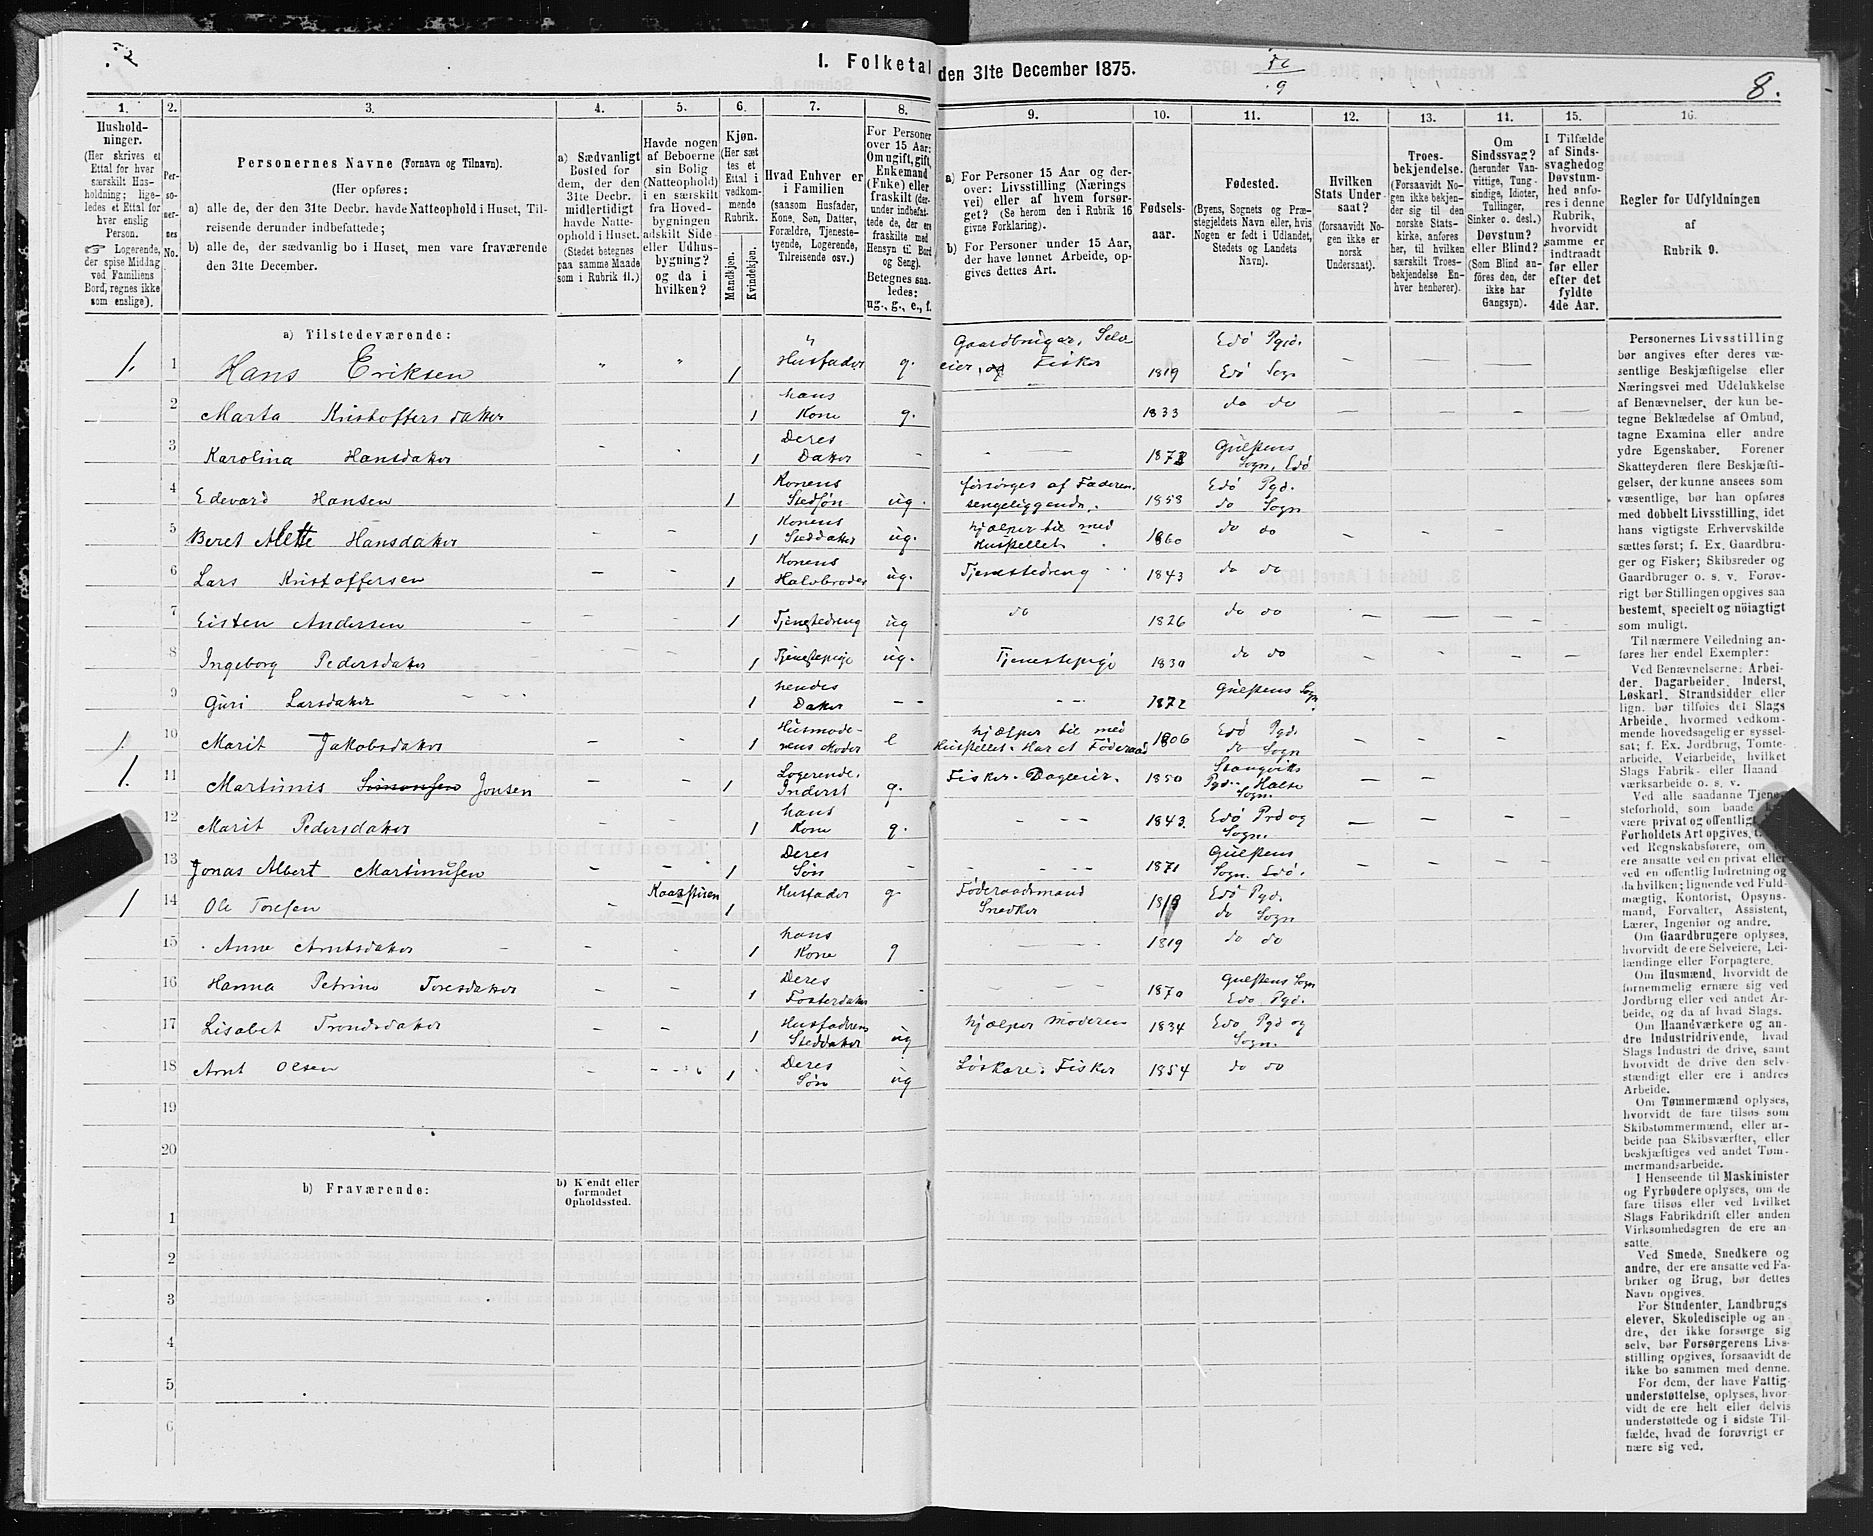 1. Folketal den 31te December 1875.
8.
1. 2. 3. 4. 5. 6. 7. 8. 9. 10. 11. 12. 13. 14. 15. 16.
Husholdninger. (Her skrives et Ettal for hver særskilt Husholdning; ligeledes et Ettal for hver enslig Person. ☞ Logerende, der spise Middag ved Familiens Bord, regnes ikke som enslige).
Personernes No.
Personernes Navne (Fornavn og Tilnavn).
(Her opføres:
a) alle de, der den 31te Decbr. havde Natteophold i Huset, Tilreisende derunder indbefattede;
b) alle de, der sædvanlig bo i Huset, men vare fraværende den 31te December.
a) Sædvanligt Bosted for dem, der den 31te Decbr. midlertidigt havde Natteophold i Huset. (Stedet betegnes paa samme Maade som i Rubrik 11.)
Havde nogen af Beboerne sin Bolig (Natteophold) i en særskilt fra Hovedbygningen adskilt Side- eller Udhusbygning? og da i hvilken?
Kjøn. (Her sættes et Ettal i vedkommende Rubrik.
Mandkjøn. Kvindekjøn.
Hvad Enhver er i Familien (saasom Husfader, Kone, Søn, Datter, Forældre, Tjenestetyende, Logerende, Tilreisende osv.)
For Personer over 15 Aar: Om ugift, gift, Enkemand (Enke) eller fraskilt (derunder indbefattede de, der ere fraskilte med Hensyn til Bord og Seng). Betegnes saaledes: ug., g., e., f.
a) For Personer 15 Aar og derover: Livsstilling (Næringsvei) eller af hvem forsørget? (Se herom den i Rubrik 16 givne Forklaring).
b) For Personer under 15 Aar, der have lønnet Arbeide, opgives dettes Art.
Fødselsaar.
Fødested. (Byens, Sognets og Præstegjeldets Navn eller, hvis Nogen er født i Udlandet, Stedets og Landets Navn).
Hvilken Stats Undersaat? (forsaavidt Nogen ikke er norsk Undersaat).
Troesbekjendelse. (Forsaavidt Nogen ikke bekjender sig til den norske Statskirke, anføres her, til hvilken særskilt Troesbekjendelse Enhver henhører).
Om Sindssvag? (herunder Vanvittige, Tungsindige, Idioter, Tullinger, Sinker o. desl.) Døvstum? eller Blind? (Som Blind anføres den, der ikke har Gangsyn).
I Tilfælde af Sindssvaghed og Døvstumhed anføres i denne Rubrik, hvorvidt samme er indtraadt før eller efter det fyldte 4de Aar.
Regler for Udfyldningen af Rubrik 9.
a) Tilstedeværende:
1. 1 Hans Eriksen " " 1 Husfader g. Gaardbruger, Selveier, og Fisker 1819 Edø Pgjd. Edø Sogn
2 Marta Kristoffersdatter 1 hans Kone g. 1833 do do
3 Karolina Hansdatter 1 Deres Datter Gulstens Sogn, Edø
4 Edevard Hansen 1 Konens Stedsøn ug. forsørges af Faderen, sengeliggende. 1858 Edø Pgd. do Sogn
5 Beret Mette Hansdatter 1 Konens Steddatter ug. hjælper til med Husstellet 1860 do do
6 Lars Kristoffersen 1 Konens Halvbroder ug. Tjenestedreng 1843 do do
7 Eisten Andersen 1 Tjenestedreng ug do 1826 do do
8 Ingeborg Pedersdatter 1 Tjenestepige ug. Tjenestepige 1830 do do
9 Guri Larsdatter 1 hendes Datter 1872 Gulstens Sogn
1. 10 Marit Jakobsdatter 1 Husmoderens Moder e hjælper til med Husstellet. Har et Føderaad 1806 Edø Pgd. do Sogn
1. 11 Martinus Simonsen Jonsen 1 Logerende, Inderst g. Fisker. Dagleier. 1850 Stangviks Pgd. Halse Sogn.
12 Marit Pedersdatter 1 hans Kone g. 1843. Edø Prd og Sogn.
13 Jonas Albert Martinusen 1 Deres Søn 1871 Gulstens Sogn. Edø.
1 14 Ole Toresen Kaarstuen 1 Husfader g. Føderaadsmand Snedker Edø Pgd. do Sogn
15 Anne Arntsdatter 1 hans Kone g 1819 do do
16 Hanna Petrine Toresdatter 1 Deres Fosterdatter 1870 Gulstens Sogn Edø Pgd.
17 Lisabet Trondsdatter 1 Husfaderens Steddatter ug hjælper Moderen 1834 Edø Pgd og Sogn.
18 Arnt Olsen 1 Deres Søn ug Løskare. Fisker 1854 do do
19
20
b) Fraværende:
b) Kjendt eller formodet Opholdssted.
1
2
3
4
5
6
Personernes Livsstilling
bør angives efter deres væ-
sentlige Beskjæftigelse eller
Næringsvei med Udelukkelse
af Benævnelser, der kun be-
tegne Beklædelse af Ombud,
tagne Examina eller andre
ydre Egenskaber. Forener
Skatteyderen flere Beskjæfti-
gelser, der kunne ansees som
væsentlige, bør han opføres
med dobbelt Livsstilling, idet
hans vigtigste Erhvervskilde
sættes først; f. Ex. Gaardbru-
ger og Fisker; Skibsreder og
Gaardbruger o. s. v. Forøv-
rigt bør Stillingen opgives saa
bestemt, specielt og nöiagtigt
som muligt.
Til nærmere Veiledning an-
føres her endel Exempler:
Ved Benævnelserne: Arbei-
der, Dagarbeider, Inderst,
Løskarl, Strandsidder eller
lign. bør tilføies det Slags
Arbeide, hvormed vedkom-
mende hovedsagelig er syssel-
sat; f. Ex. Jordbrug, Tomte-
arbeide, Veiarbeide, hvilket
Slags Fabrik- eller Haand-
værksarbeide o. s. v.
Ved alle saadanne Tjene-
steforhold, som baade
være privat og offentlig
Forholdets Art opgives,
ved Regnskabsførere, om
ere ansatte ved en privat eller
ved en offentlig Indretning og
da hvilken; lignende ved Fuld-
mægtig, Kontorist, Opsyns-
mand, Forvalter, Assistent,
Lærer, Ingeniør og andre.
Om Gaardbrugere oplyses,
hvorvidt de ere Selveiere, Lei-
lændinge eller Forpagtere.
Om Husmænd, hvorvidt de
fornemmelig ernære sig ved
Jordbrug eller ved andet Ar-
beide, og da af hvad Slags.
Om Haandværkere og an-
dre Industridrivende, hvad
Slags Industri de drive, samt
hvorvidt de drive den selv-
stændigt eller ere i andres
Arbeide.
Om Tømmermænd oplyses,
hvorvidt de fare tilsøs som
Skibstømmermænd, eller ar-
beide paa Skibsværfter, eller
beskjæftiges ved andet Tøm-
mermandsarbeide.
I Henseende til Maskinister
og Fyrbødere oplyses, om de
fare tilsøs eller ved hvilket
Slags Fabrikdrift eller anden
Virksomhedsgren de ere an-
satte.
Ved Smede, Snedkere og
andre, der ere ansatte ved Fa-
briker og Brug, bør dettes
Navn opgives.
For Studenter, Landbrugs-
elever, Skoledisciple og an-
dre, der ikke forsørge sig
selv, bør Forsørgerens Livs-
stilling opgives, forsaavidt de
ikke bo sammen med denne.
For dem, der have Fattig-
understøttelse, oplyses, hvor-
vidt de ere helt eller delvis
understøttede og i sidste Til-
fælde, hvad de forøvrigt er-
nære sig ved.